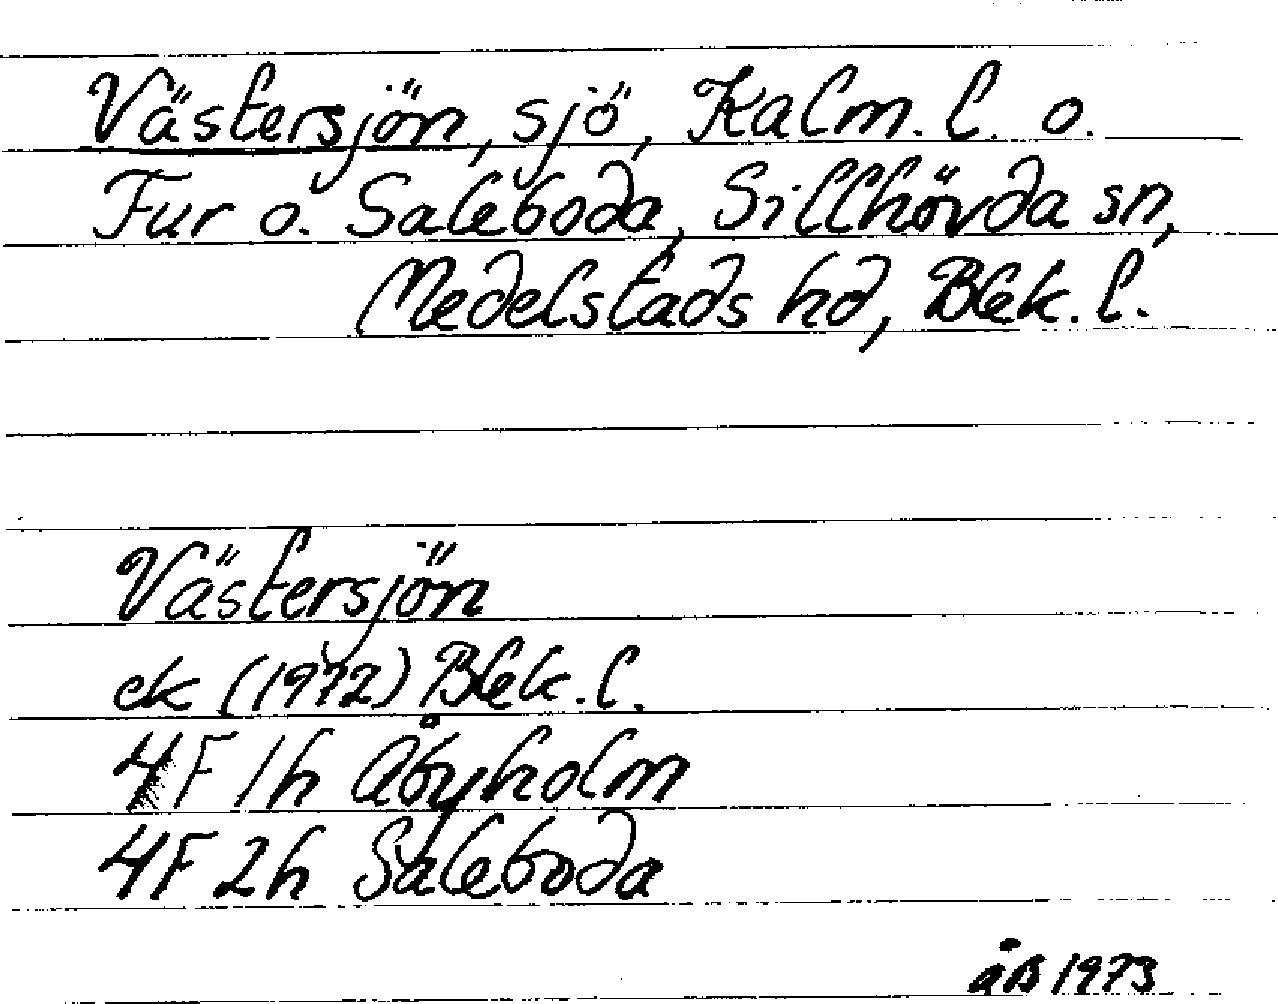 Västersjön, sjö, Kalm. l. o.
Fur o. Saleboda, Sillhövda sn,
Medelstads hd, Blek. l.
Västersjön
ek (1972) Blek. l.
4F 1h Åbyholm
4F 2h Saleboda
åB 1973